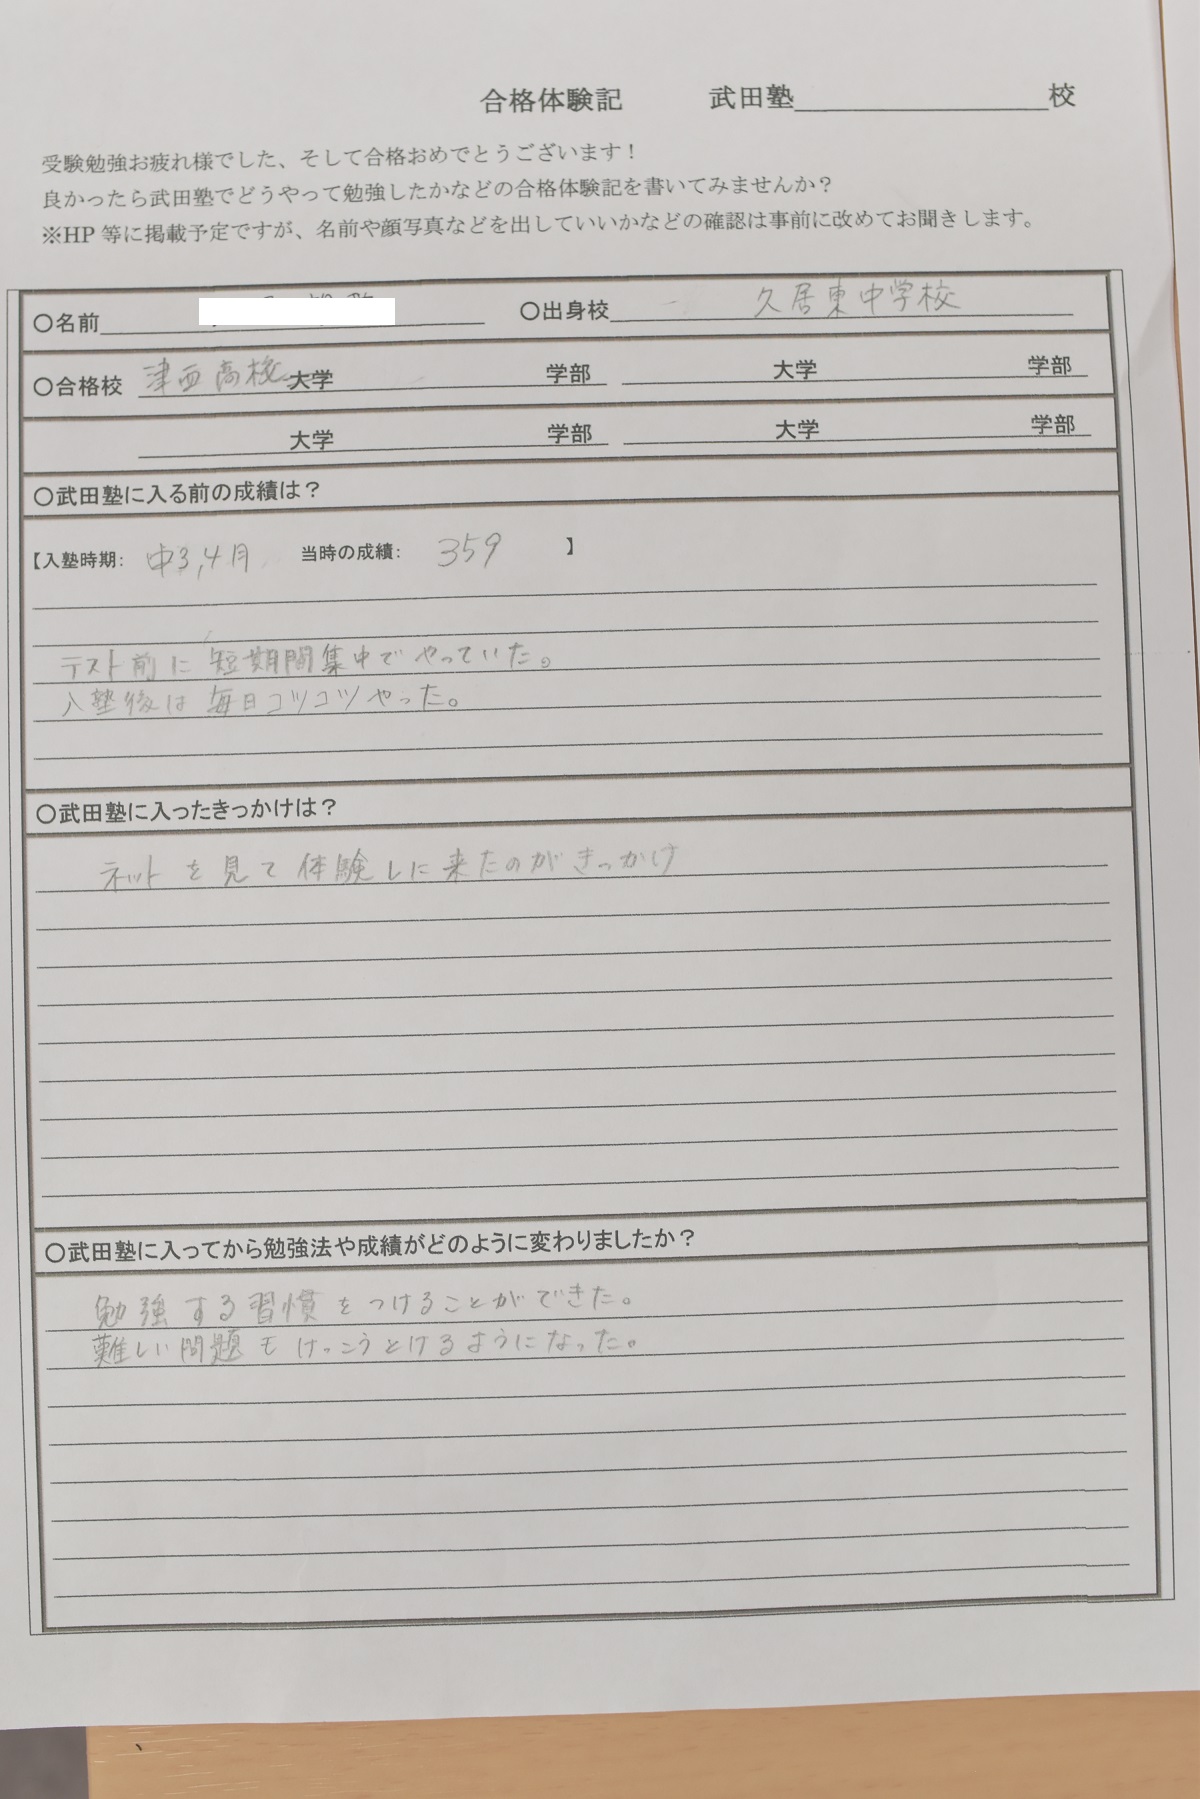 合格体験記 武田塾 校
受験勉強お疲れ様でした、そして合格おめでとうございます！
良かったら武田塾でどうやって勉強したかなどの合格体験記を書いてみませんか？
※HP 等に掲載予定ですが、名前や顔写真などを出していいかなどの確認は事前に改めてお聞きします。
○名前 ○出身校 久居東中学校
○合格校 津西高校 大学 学部 大学 学部
大学 学部 大学 学部
○武田塾に入る前の成績は？
【入塾時期： 中3,4月 当時の成績： 359 】
テスト前に短期間集中でやっていた。
入塾後は毎日コツコツやった。
○武田塾に入ったきっかけは？
ネットを見て体験しに来たのがきっかけ
○武田塾に入ってから勉強法や成績がどのように変わりましたか？
勉強する習慣をつけることができた。
難しい問題もけっこうとけるようになった。